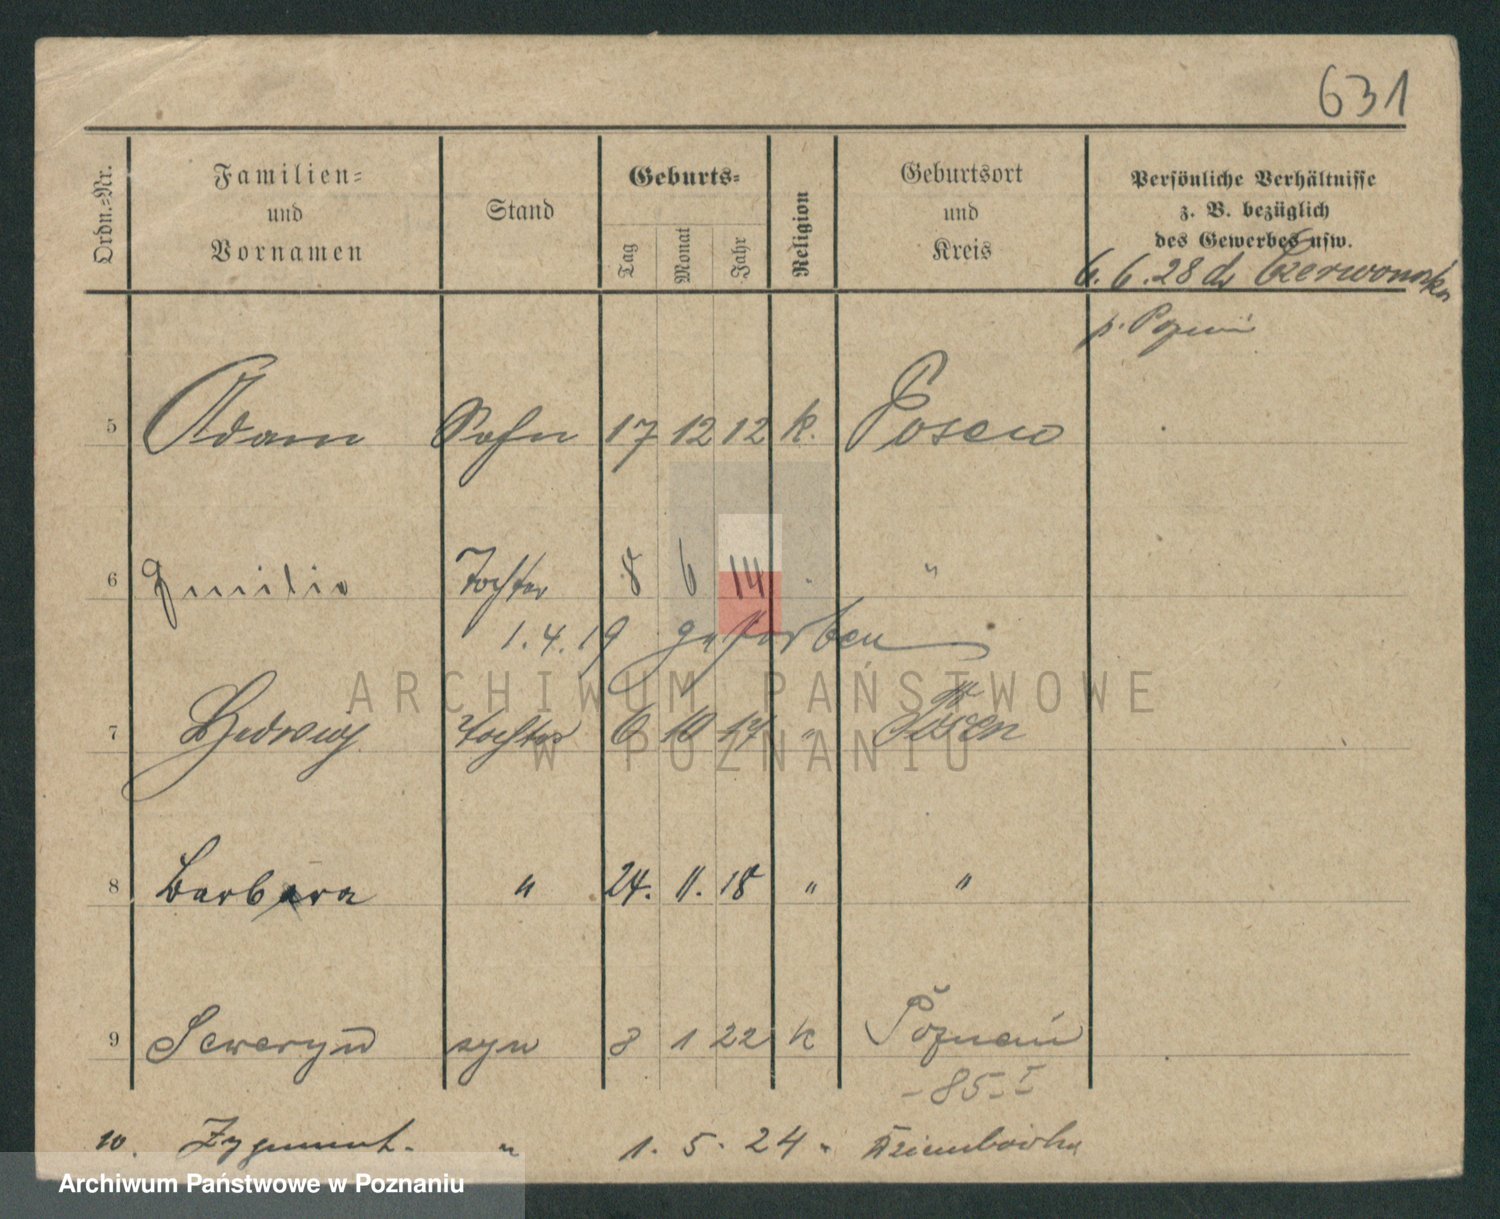 631
Ordn.-Nr.
Familien-
und
Vornamen
Stand
Geburts-
Tag
Monat
Jahr
Religion
Geburtsort
und
Kreis
Persönliche Verhältnisse
z. B. bezüglich
des Gewerbes usw.
6. 6. 28 do Czerwonaka
p. Poznań
5 Adam Sohn 17 12 12 k. Posen
6 Emilie Tochter 8 6 14 " "
1. 4. 19 gestorben
7 Hedwig Tochter 6 10 17 " Posen
8 Barbara " 24. 11. 18 " "
9 Seweryn syn 8 1 22 k Poznań
- 85 I
10. Zygmunt. " 1. 5. 24 "
ARCHIWUM PAŃSTWOWE
W POZNANIU
Archiwum Państwowe w Poznaniu